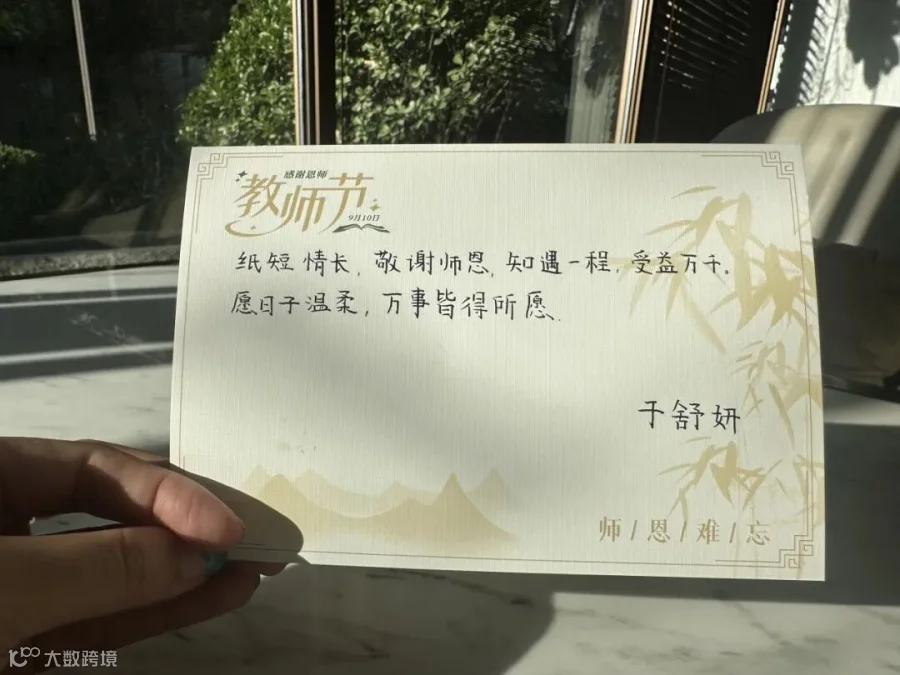 感謝恩师
教师节
9月10日
纸短情长，敬谢师恩，知遇一程，受益万千。
愿日子温柔，万事皆得所愿。
于舒妍
师/恩/难/忘
大数跨境